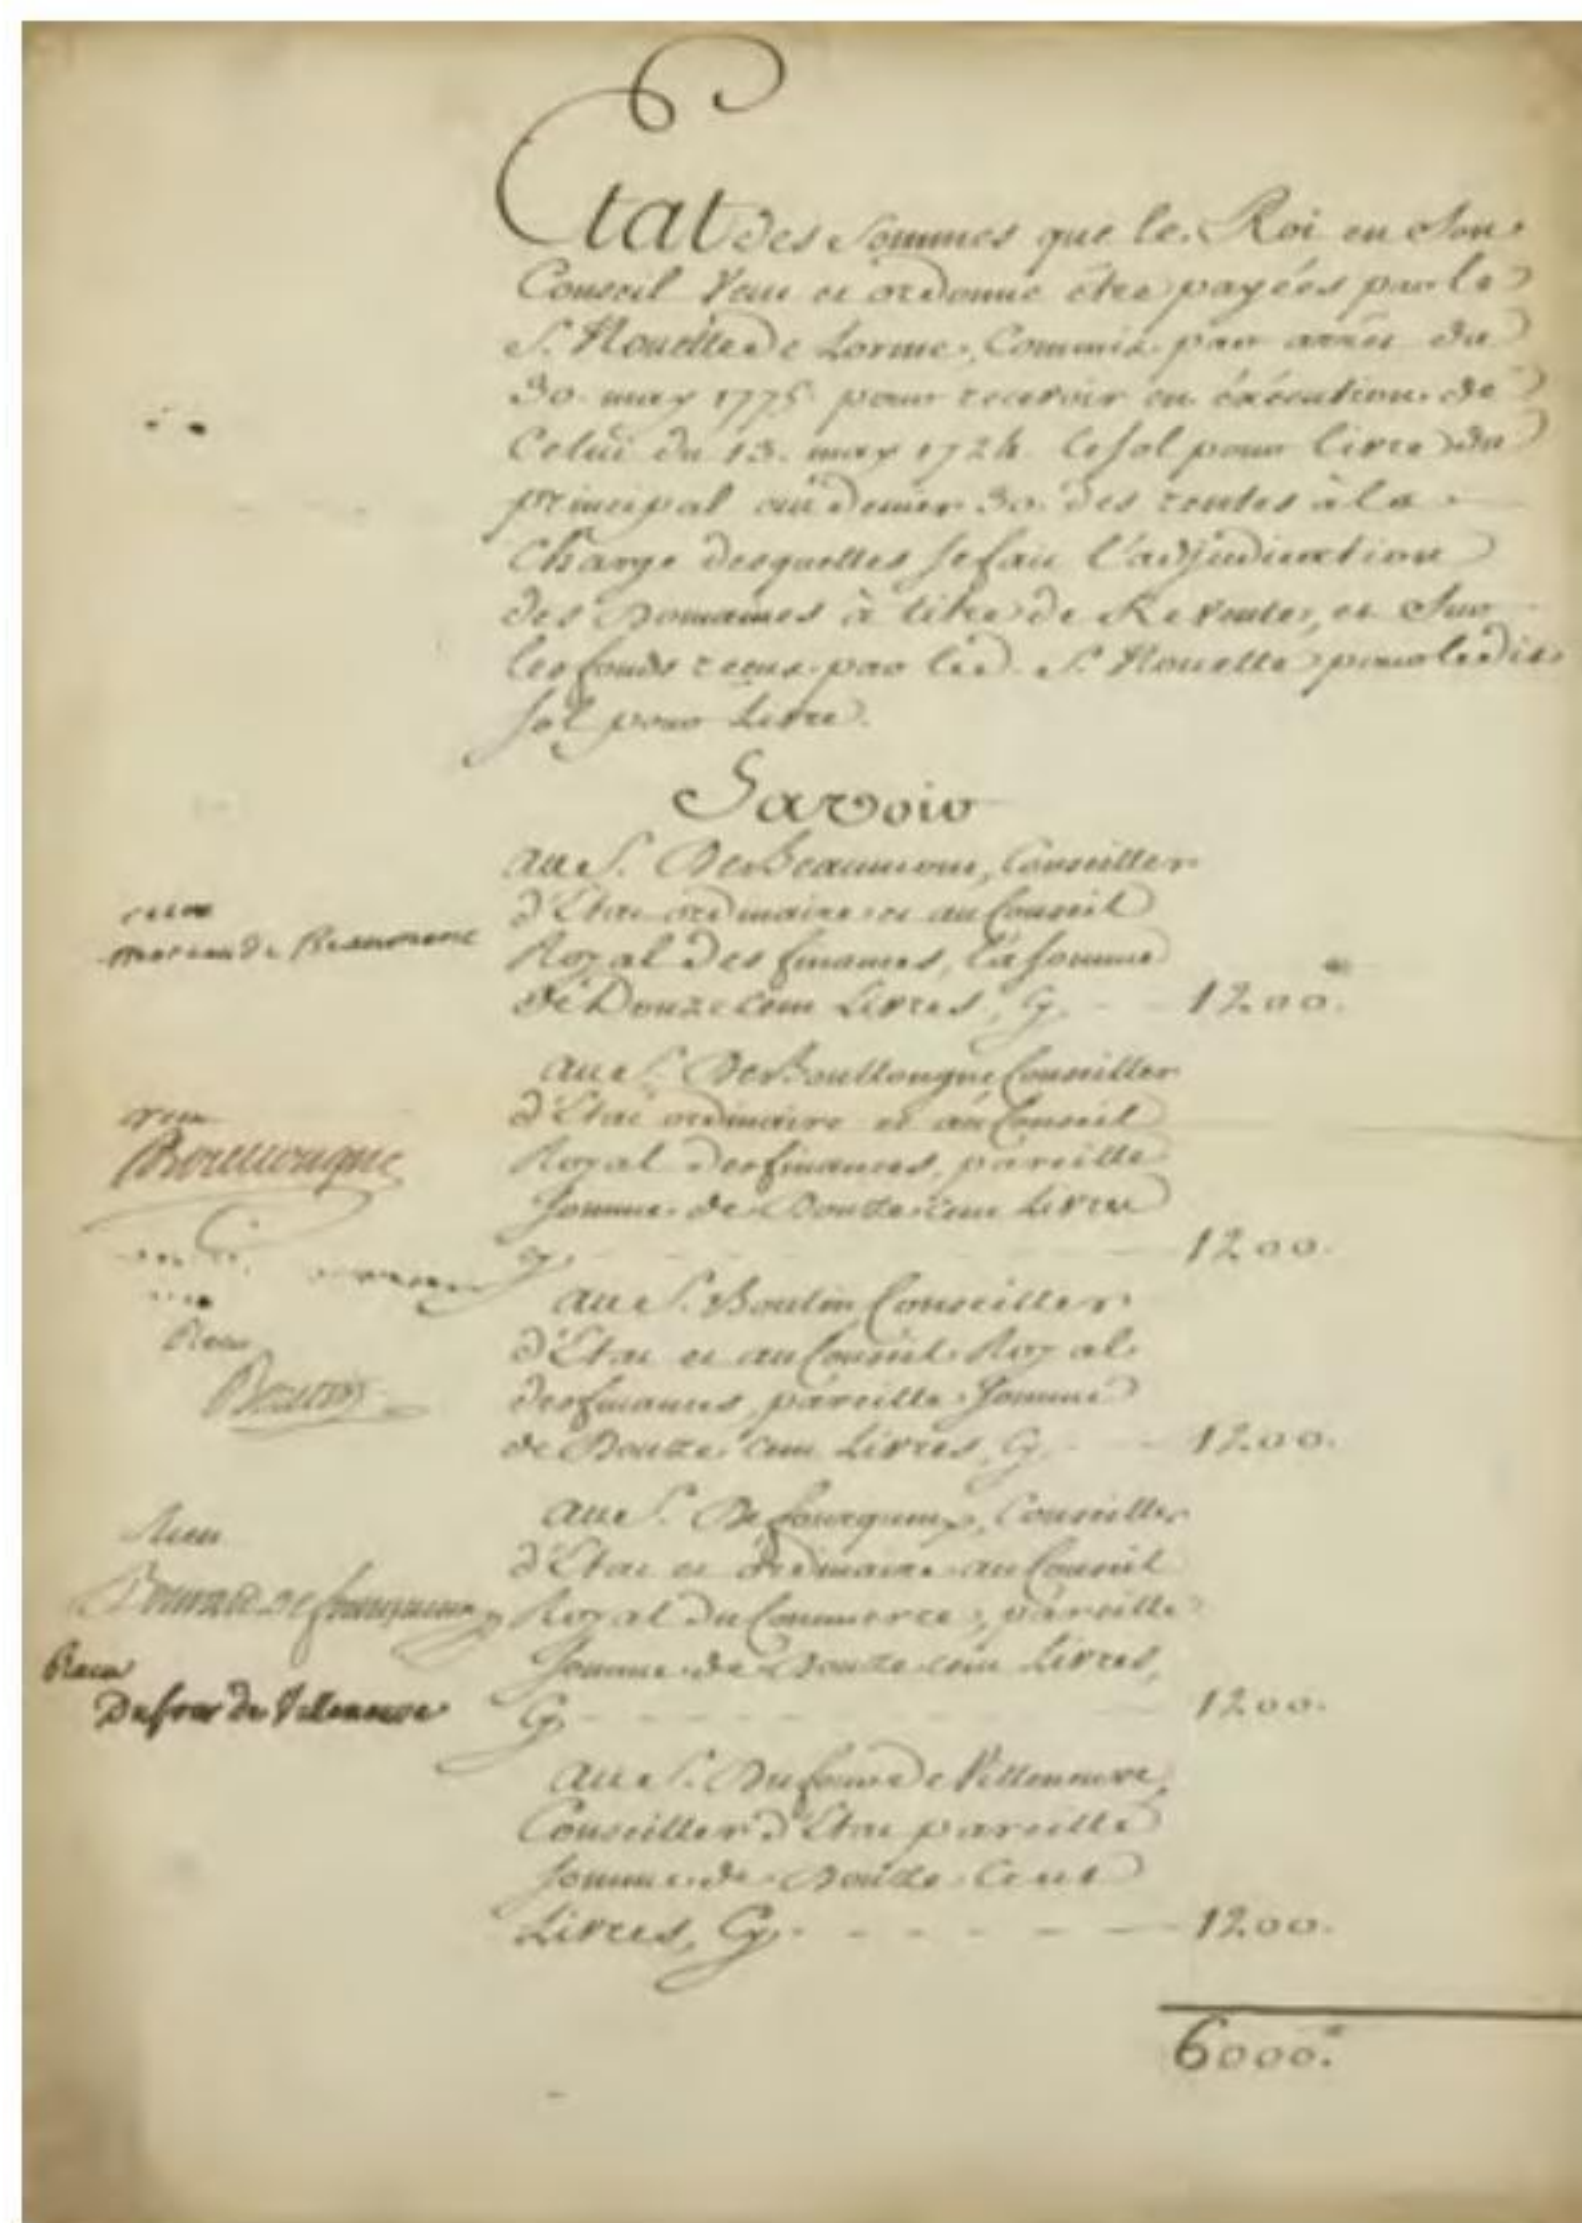 Etat des Sommes que le Roi en Son
Conseil Veut et ordonne être payées par le
S. Nouette De Lorme, Commis par arrêt du
30. may 1775. pour recevoir en éxécution de
Celui du 13. may 1724. le sol pour livre du
principal au denier 30. des rentes à la
Charge desquelles se fait l'adjudication
des Domaines à titre de Revente, et Sur
les fonds reçus par led. S. Nouette pour ledit
sol pour Livre.
Savoir
Au S. De Beaumont, Conseiller
d'Etat ordinaire et au Conseil
Royal des finances, la somme
de Douze cent Livres, Cy - - 1200.
moreau de Beaumont
Au S. De Boullongne Conseiller
d'Etat ordinaire et au Conseil
Royal des finances, pareille
somme de Douze cent Livres
Cy - - - 1200.
Boullongne
Au S. Boutin Conseiller
d'Etat et au Conseil Royal
des finances, pareille somme
de Douze cent Livres, Cy - - 1200.
Recu
Boutin
Au S. De fourqueux, Conseiller
d'Etat et ordinaire au Conseil
Royal du Commerce, pareille
somme de Douze cent Livres,
Cy - - - - - 1200.
Recu
Bouvard de fourqueux
Recu
Dufour de Villeneuve
Au S. Dufour de Villeneuve,
Conseiller d'Etat pareille
somme de Douze Cent
Livres, Cy - - - - - 1200.
6000.